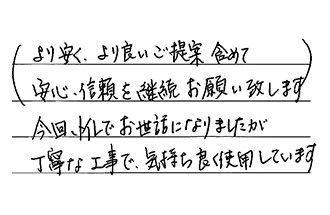 (より安く、より良いご提案含めて
安心、信頼を継続お願い致します)
今回、トイレでお世話になりましたが
丁寧な工事で、気持ち良く使用しています